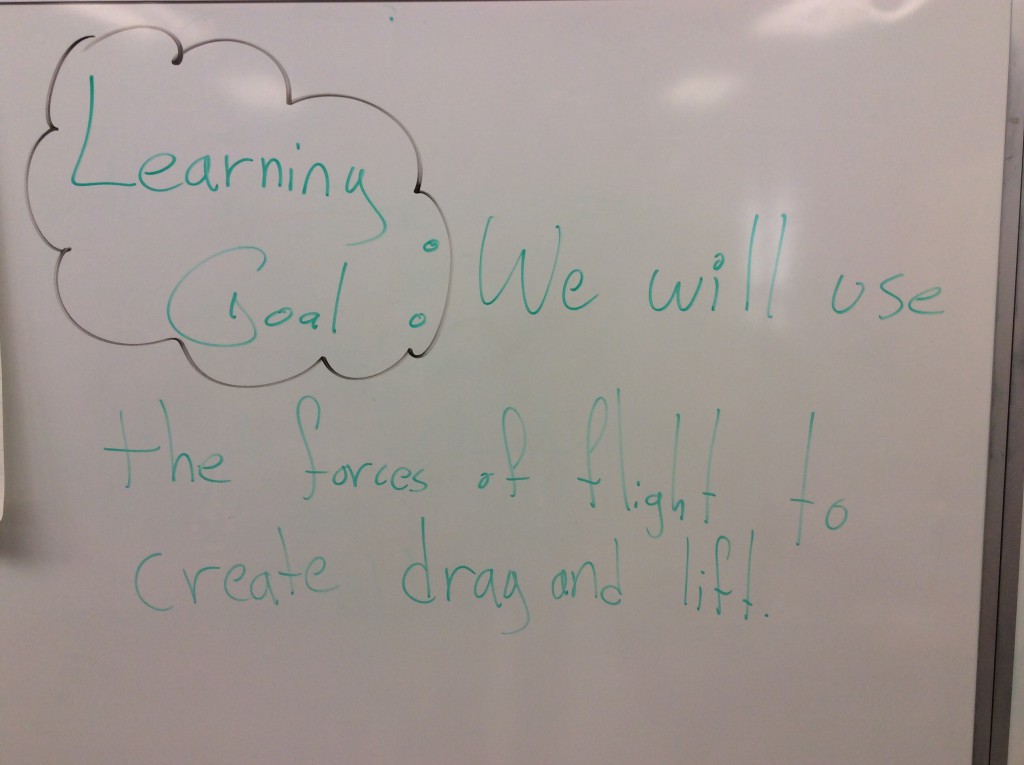 Learning
Goal : We will use
the forces of flight to
create drag and lift.